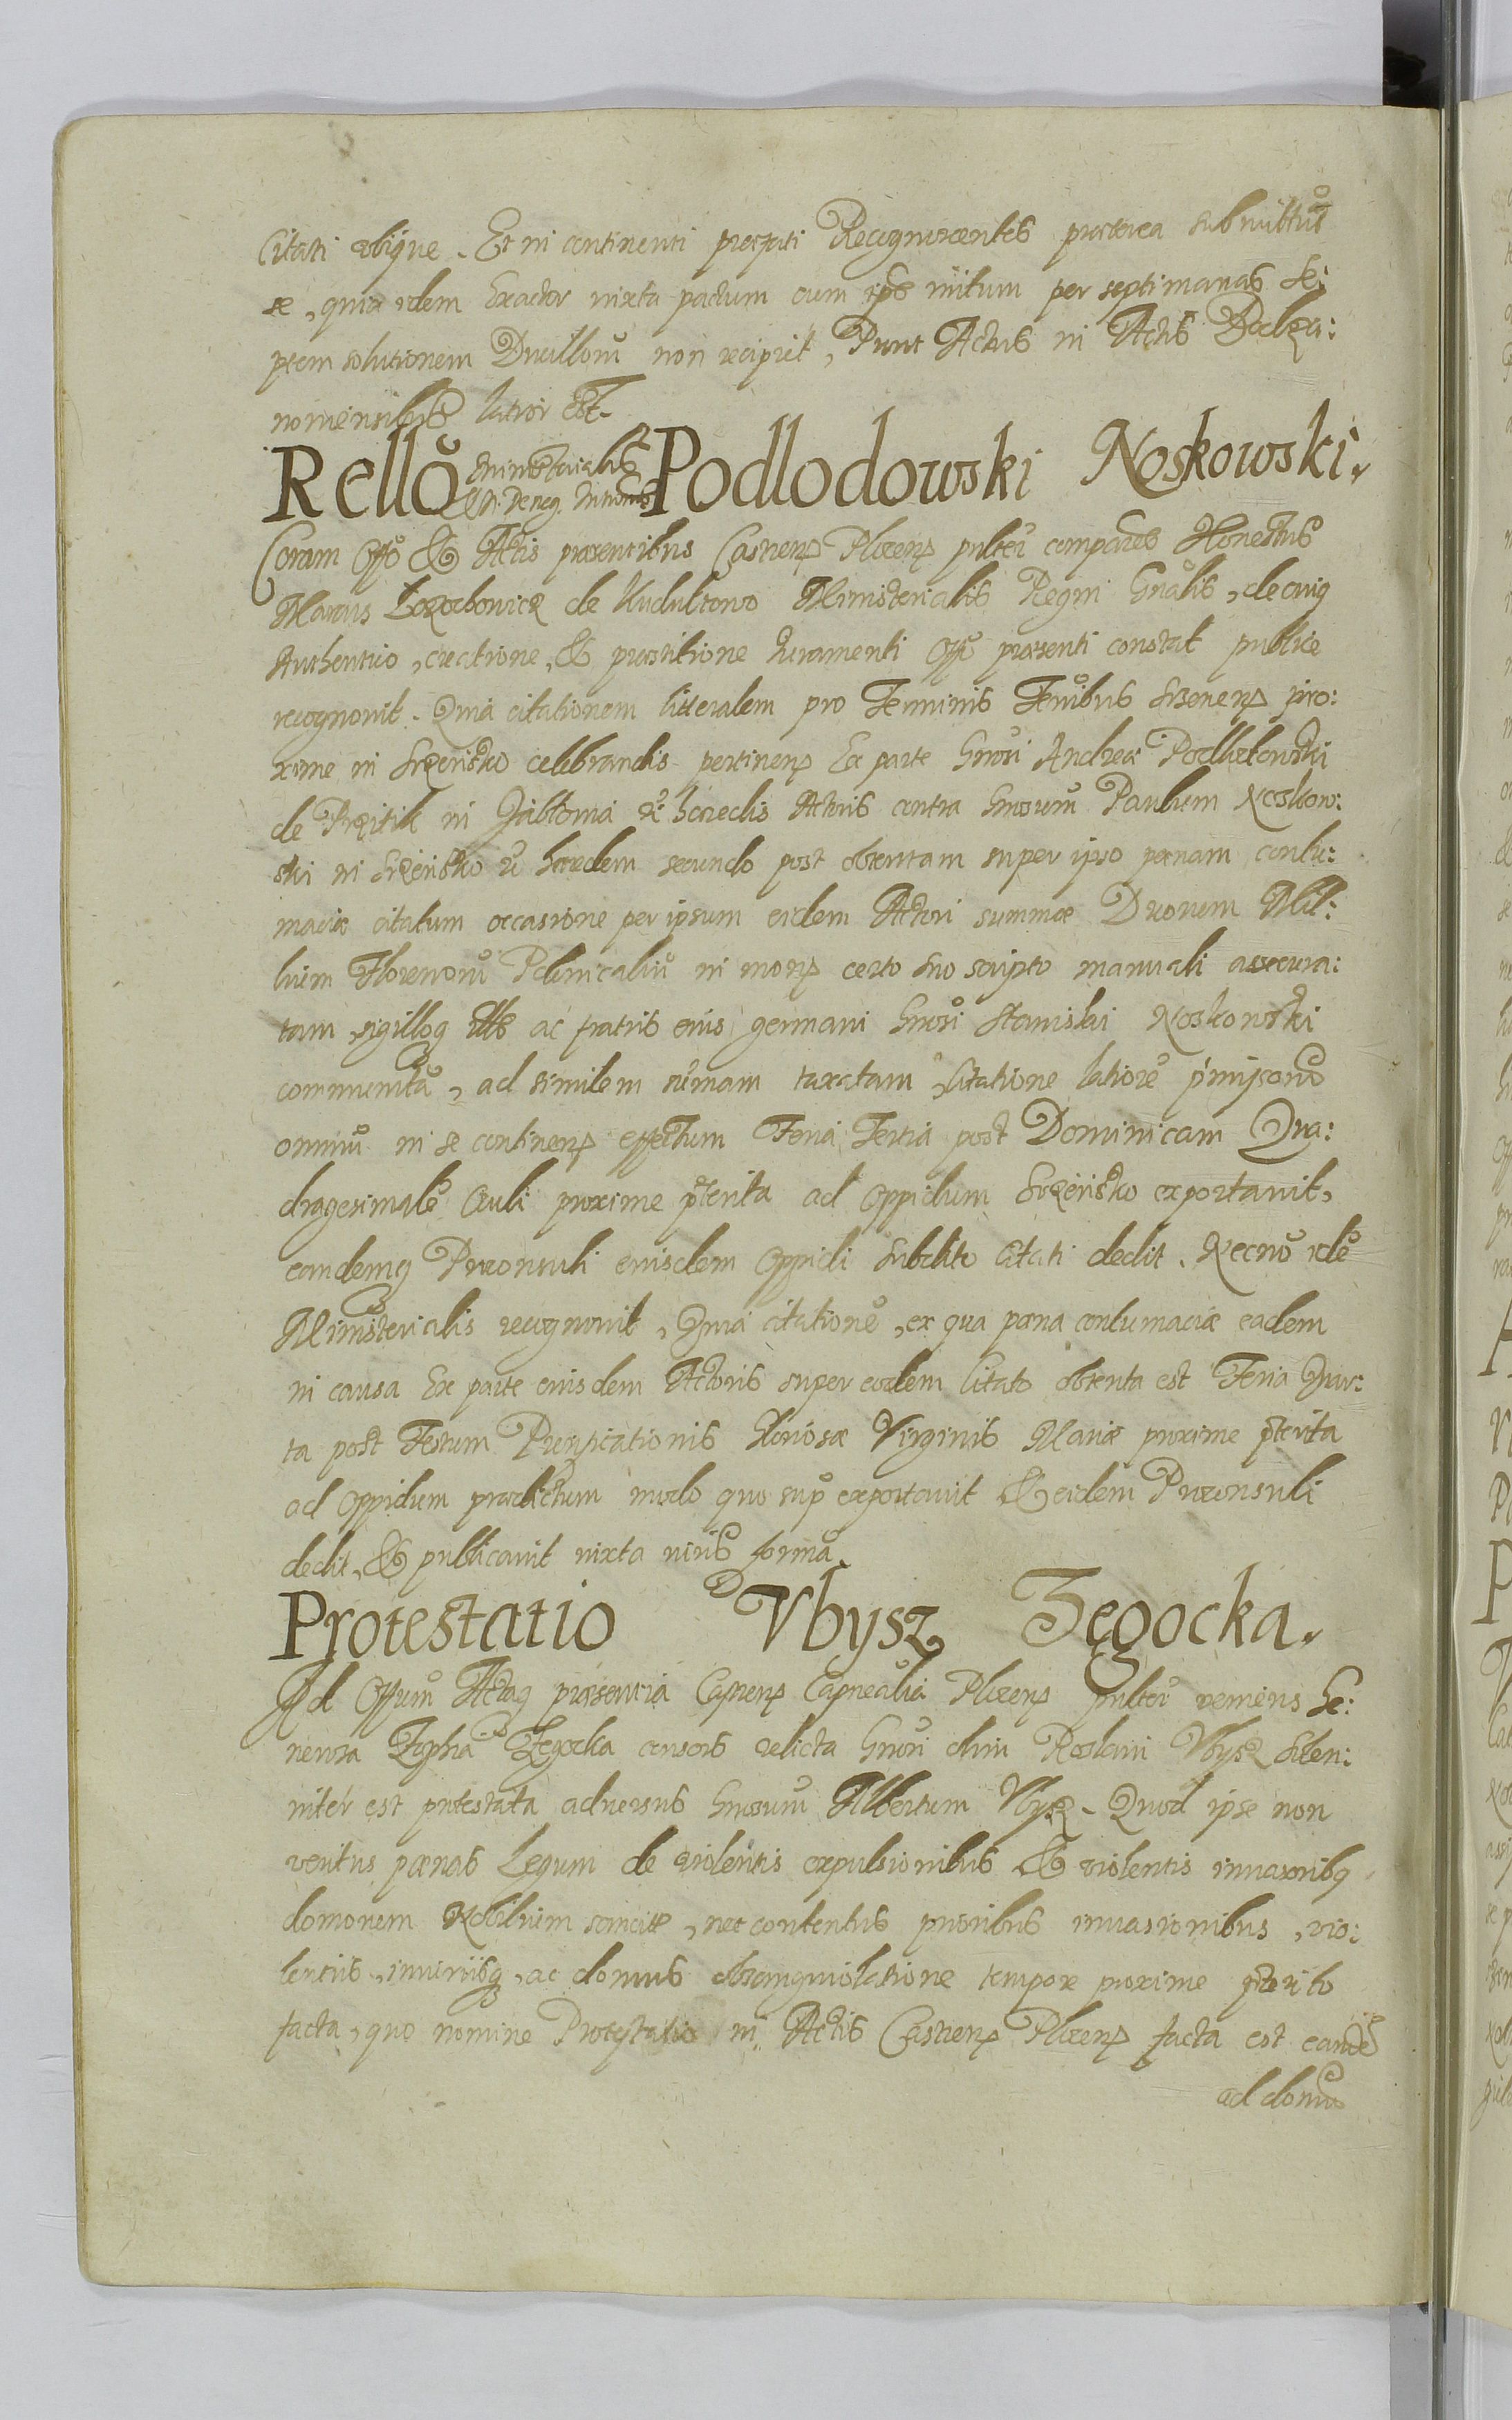 Citati ubique. Et in continenti praefati Recognoscentes praeterea submittut
se, quia idem Exactor iuxta pactum cum ips initum per septimanas Se:
ptem solutionem Duillorũ non recipit, Prout Actus in Actis
latior est.
Rellõ Ministerialis Podlodowski Noskowski.
Coram Offõ & Actis praesentibus Castren Plocen pulter comparẽs Honestus
Marcus de Ministerialis Regni Gnãlis, de cuiq
Authentico, creatione, & praestitione Iuramenti Offõ praesenti constat publice
recognovit. Quia citationem litteralem pro Terminis Tenibus Srzenen pro:
xime in Srzeńsko celebrandis pertinen Ex parte Gnosi Andreae Podlodowski
de Przitik in Jabłonia &c haeredis Actoris contra Gnosum Paulum Noskow:
ski in Srzeńsko &c haeredem secundo post obtentam super ipso poenam contu:
maciae citatum occasione per ipsum eidem Actori summae Duorum Mil:
lium Florenorũ Polonicaliũ in mon certo suo scripto manuali assecura:
tam, sigilloq illˢ ac fratris eius germani Gnosi Stanislai Noskowski
communitũ, ad similem sũmam taxatam, Citatione latiorẽ p̃missorũ
omniũ in se continen effectum Feria Tertia post Dominicam Qua:
dragesimalẽ Cculi proxime p̃terita ad oppidum Srzeńsko exportavit,
eandemq Proconsuli eiusdem oppidi subdito Citati dedit. Necnõ idẽ
Ministerialis recognovit, Quia citationẽ, ex qua poena contumaciae eadem
in causa Ex parte eiusdem Actoris super eodem Citato obtenta est Feria Quar:
ta post Festum Purificationis Gloriosae Virginis Mariae proxime p̃terita
ad oppidum praedictum modo quo sup exportavit & eidem Proconsuli
dedit, & publicavit iuxta iuris formã.
Protestatio Vbysz Zegocka.
Ad Offum Actaq praesentia Castren Capnealia Plocen pulter veniens Ge:
nerosa Zophia Zegocka consors relicta Gnosi olim Vbysz solen:
niter est protestata adversus Gnosum Albertum Vbysz. Quod ipse non
veritus poenas Legum de violentis expulsionibus & violentis invasoribq
domorum Nobilium sancitas, nec contentus prioribus invasionibus, vio:
lentiis, iniuriisq, ac domus tempore proxime p̃terito
facta, quo nomine Protestatio in Actis Castren Plocen facta est eandẽ
ad domũ